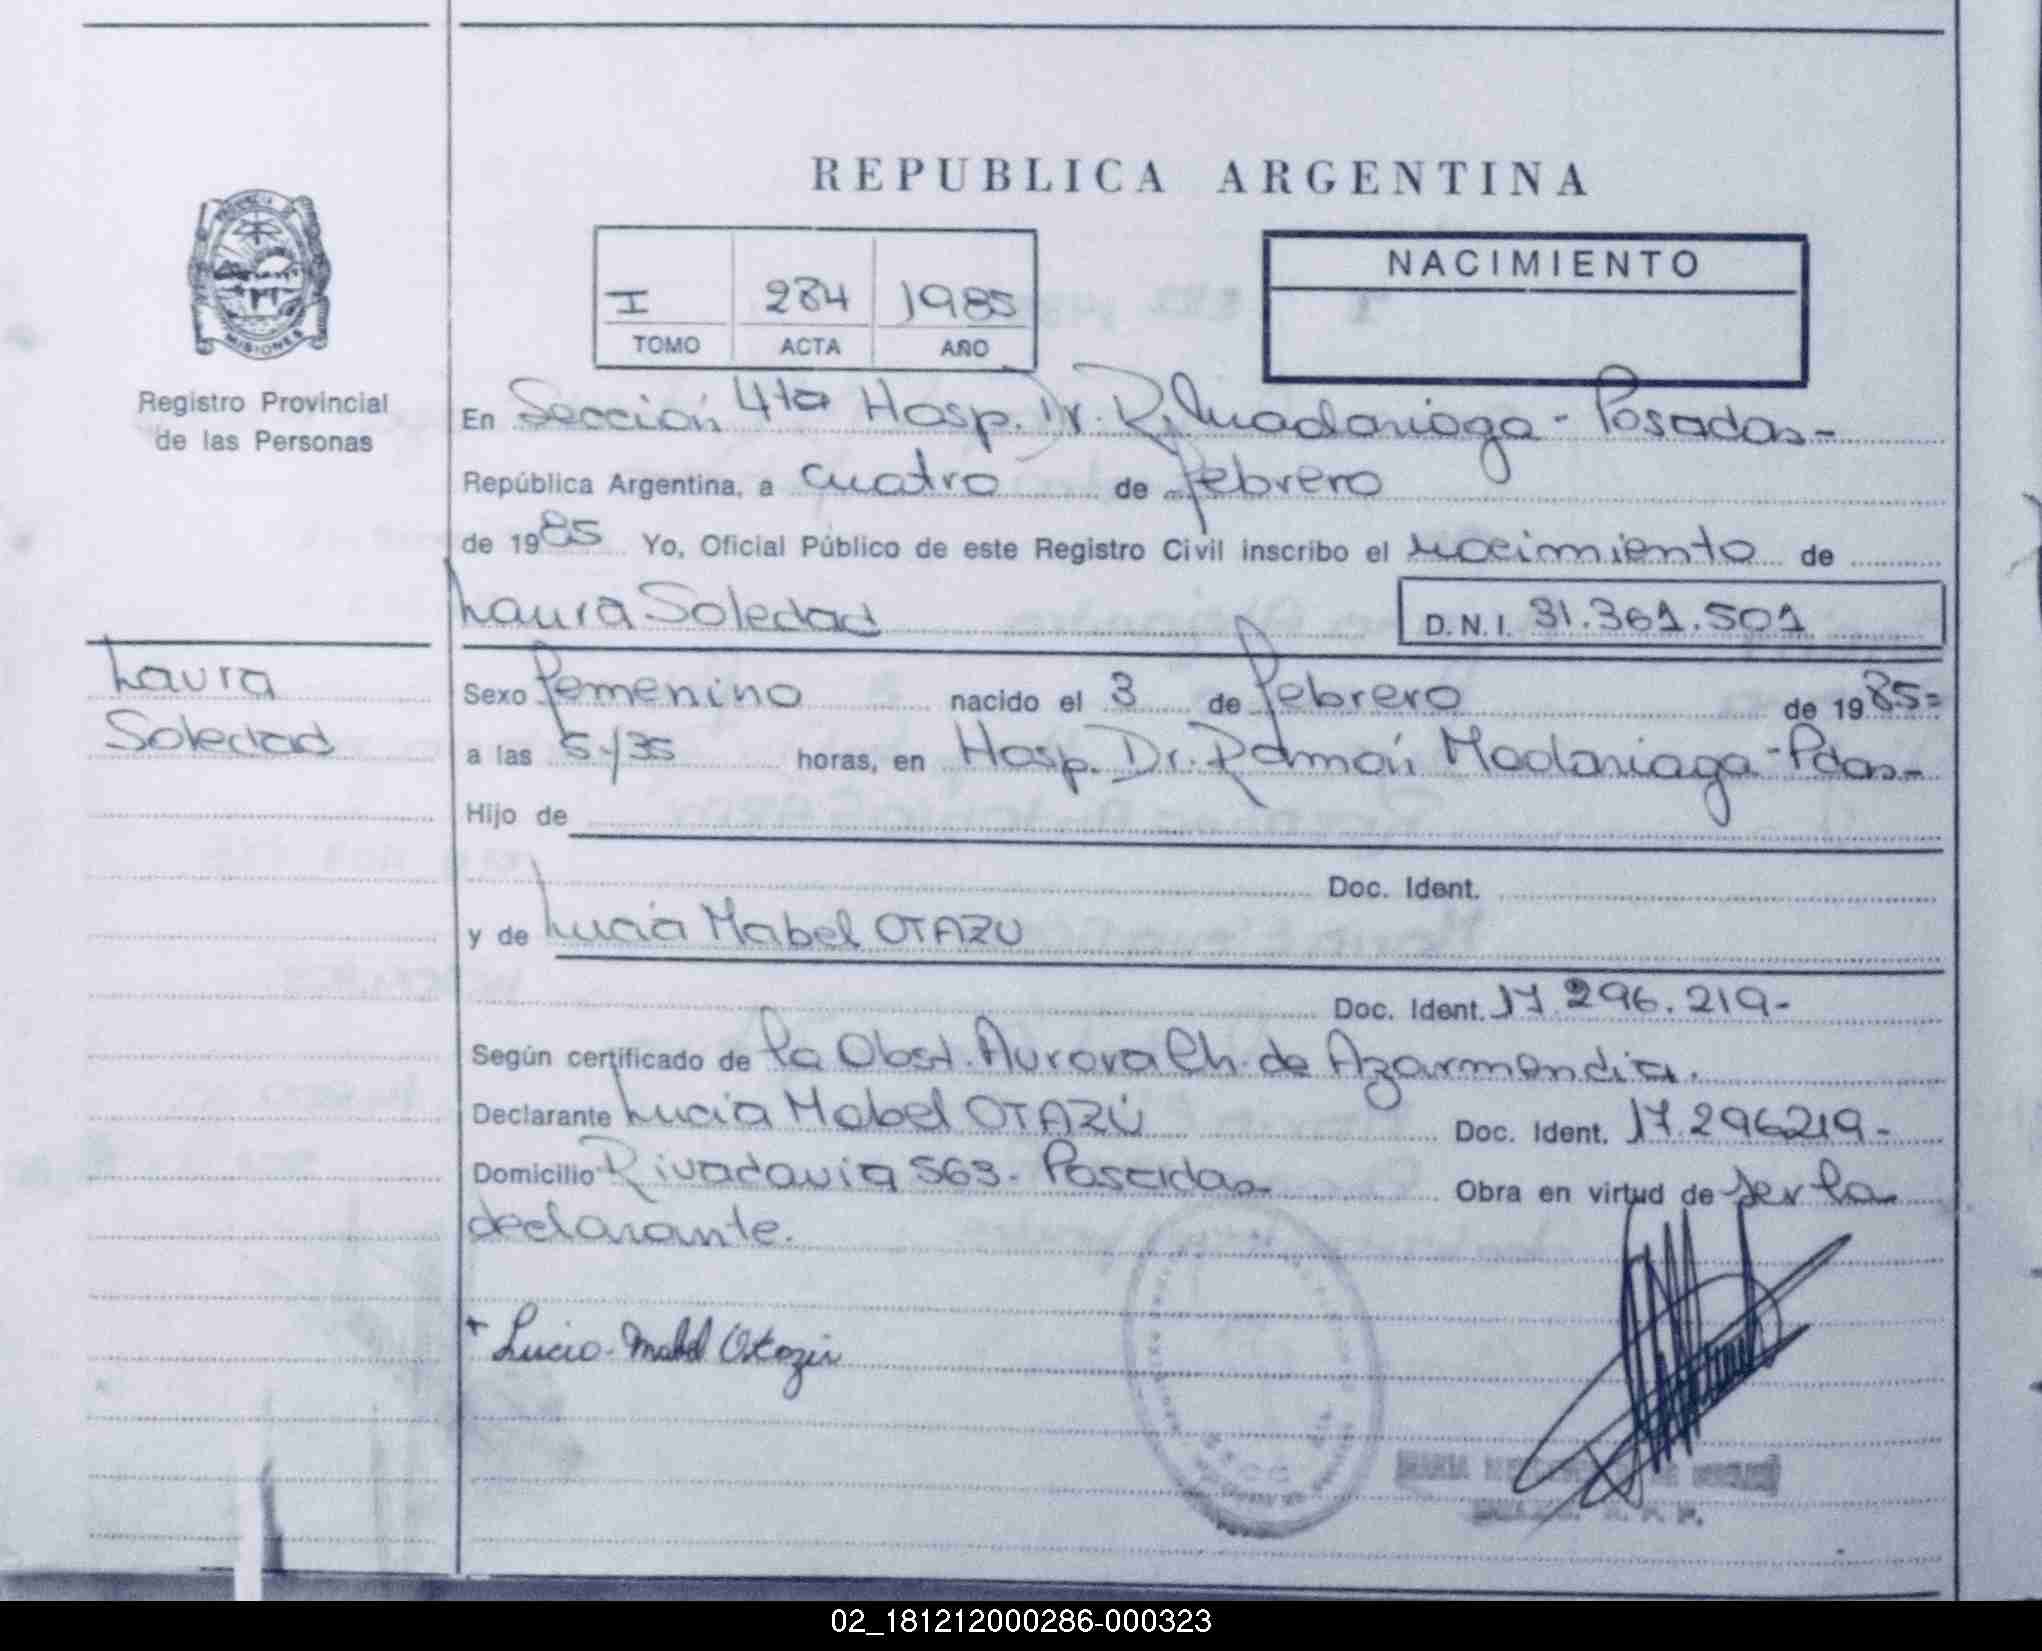 REPUBLICA ARGENTINA
PROVINCIA DE
MISIONES
Registro Provincial
de las Personas
I 284 1985
TOMO ACTA AÑO
NACIMIENTO
En Sección 4ta Hosp. Dr. R. Madariaga - Posadas-
República Argentina, a cuatro de febrero
de 1985 Yo, Oficial Público de este Registro Civil inscribo el nacimiento de
Laura Soledad D.N.I. 31.361.501
Laura
Soledad
Sexo femenino nacido el 3 de febrero de 1985=
a las 5/35 horas, en Hosp. Dr. Ramón Madariaga - Pdas-
Hijo de
Doc. Ident.
y de Lucia Mabel OTAZU
Doc. Ident. 17.296.219-
Según certificado de la Obst. Aurora Ch. de Azarmendia.
Declarante Lucia Mabel OTAZÚ Doc. Ident. 17.296219-
Domicilio Rivadavia 563- Posadas Obra en virtud de ser la
declarante.
+ Lucia Mabel Otazu
MARIA
02_181212000286-000323